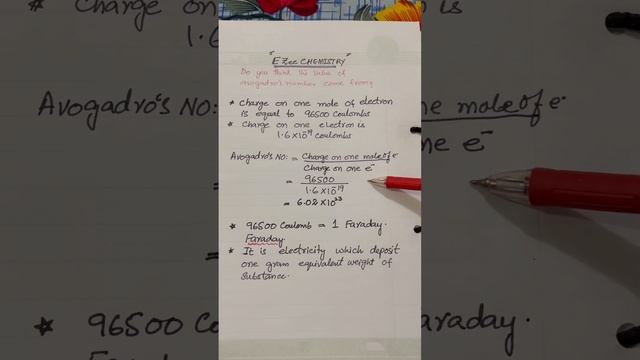 "EZee CHEMISTRY"
Do you think the value of
avogadro's number come from?
* Charge on one mole of electron
is equal to 96500 Coulombs
* Charge on one electron is
1.6×10⁻¹⁹ coulombs
Avogadro's NO: = Charge on one mole of e⁻
Charge on one e⁻
= 96500
1.6×10⁻¹⁹
= 6.02×10²³
* 96500 Coulomb = 1 Faraday.
Faraday
* It is electricity which deposit
one gram equivalent weight of
substance.